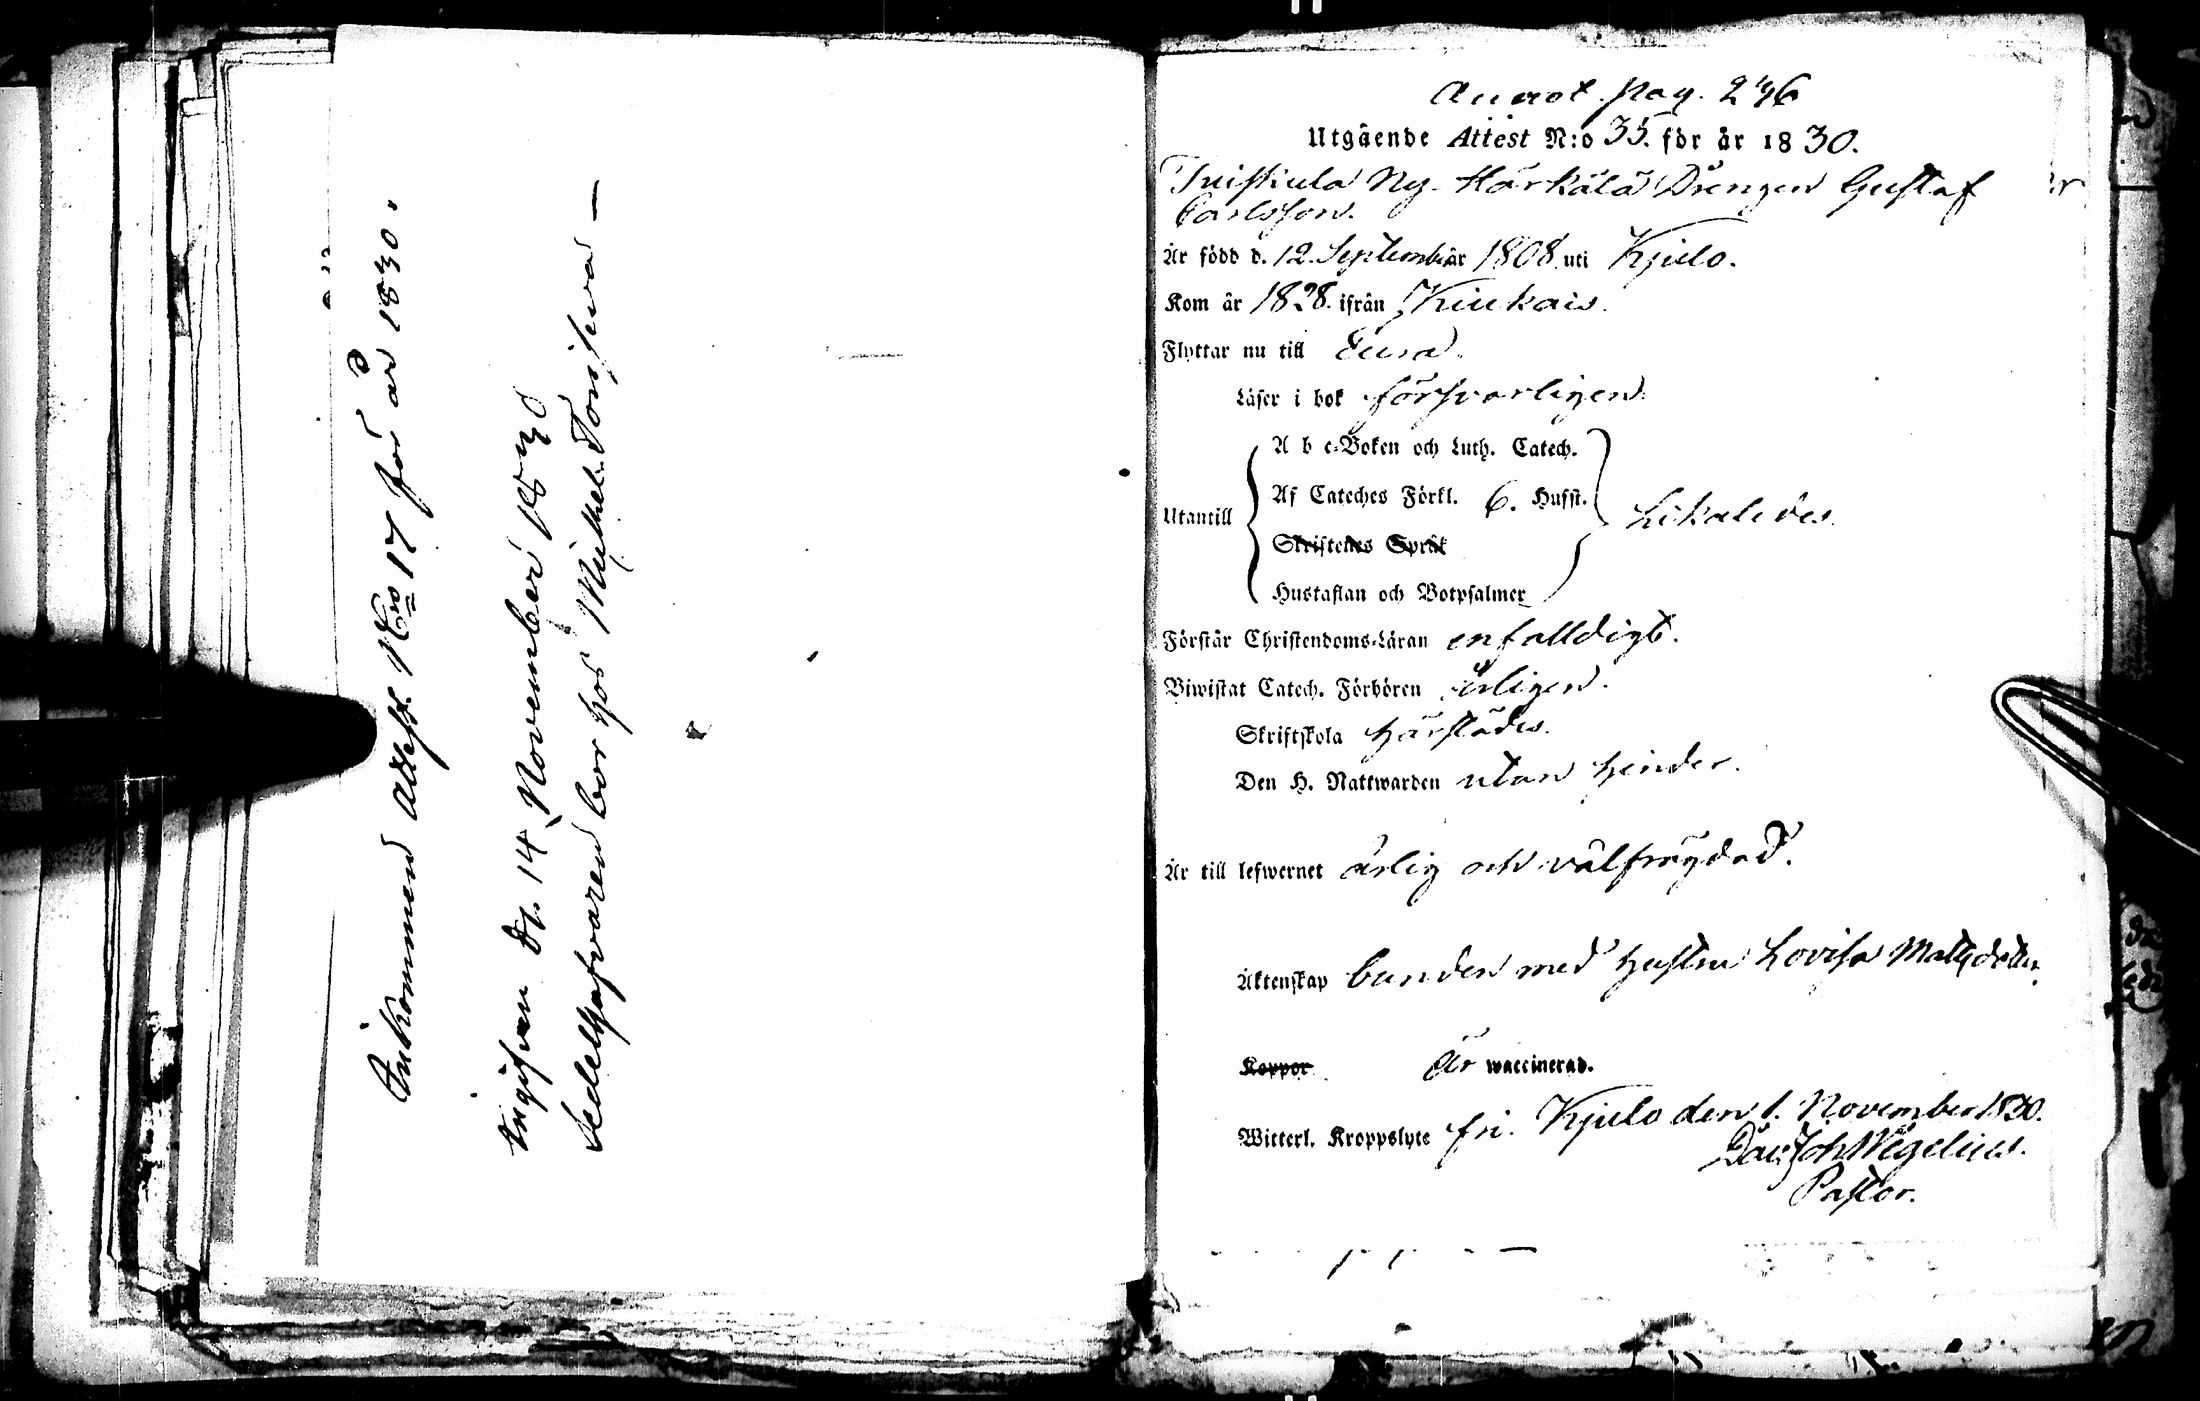 Inkommen Attest Nro 17 för år 1830.
Ingifven d. 14 November 1830
Sedelhafvaren bor hos Michel Tonisva —
Annot. Pag. 246
Utgående Attest N:o 35. för år 1830.
Tuiskula Ny-Härkälä Drengen Gustaf
Carlsson.
Är född d. 12. Septembär 1808. uti Kjulo.
Kom år 1828. ifrån Kiukais.
Flyttar nu till Eura.
Läser i bok försvarligen.
A b c-Boken och Luth. Catech.
Af Cateches Förkl. 6. Hufst.
Utantill Likaledes.
Skriftenes Språk
Hustaflan och Botpsalmer
Förstår Christendoms-Läran enfalldigt.
Biwistat Catech. Förhören årligen.
Skriftskola härstädes.
Den H. Nattwarden utan hinder.
Är till lefwernet ärlig och välfrägdad.
Äktenskap bunden med hustru Lovisa Mattsdotter.
Koppor Är waccinerad.
Witterl. Kroppslyte fri. Kjulo den 1. November 1830.
Dav. Joh Wegelius.
Pastor.